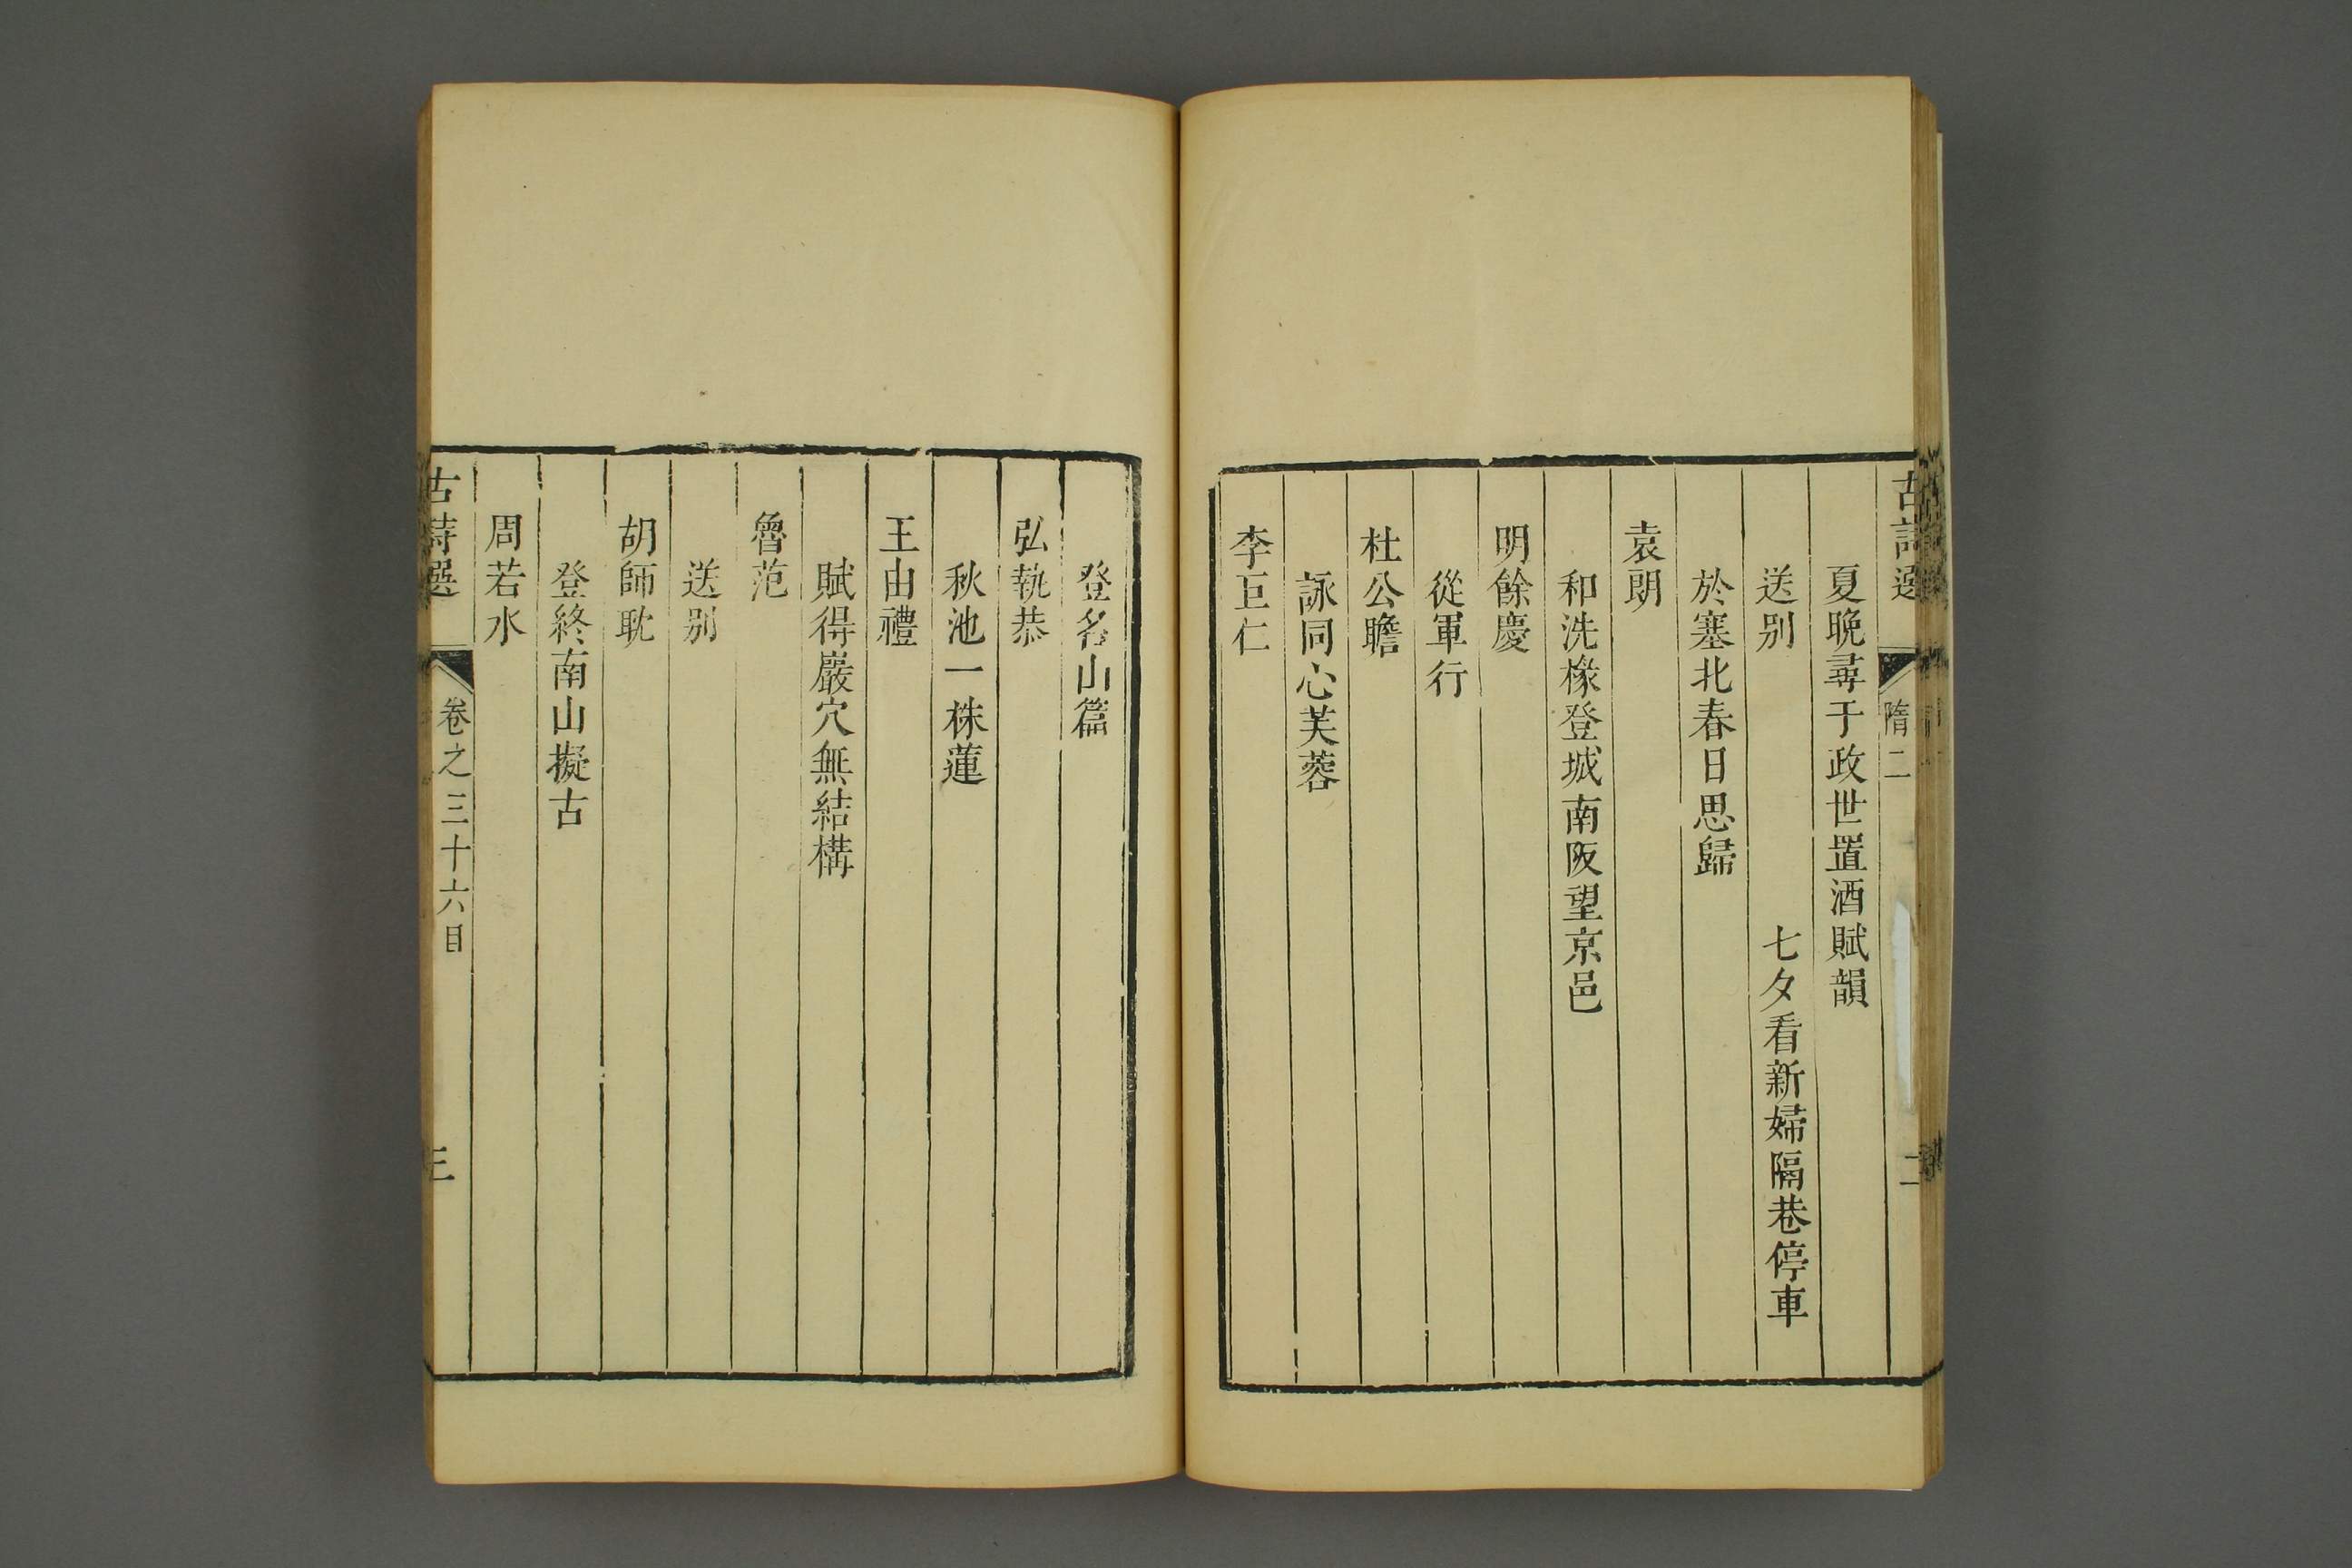 古詩選
隋二
二
夏晚尋于政世置酒賦韻
送別
七夕看新婦隔巷停車
於塞北春日思歸
袁朗
和洗椽登城南阪望京邑
明餘慶
從軍行
杜公瞻
詠同心芙蓉
李巨仁
登名山篇
弘執恭
秋池一株蓮
王由禮
賦得巖穴無結構
魯范
送別
胡師耽
登終南山擬古
周若水
古詩選
卷之三十六目
三